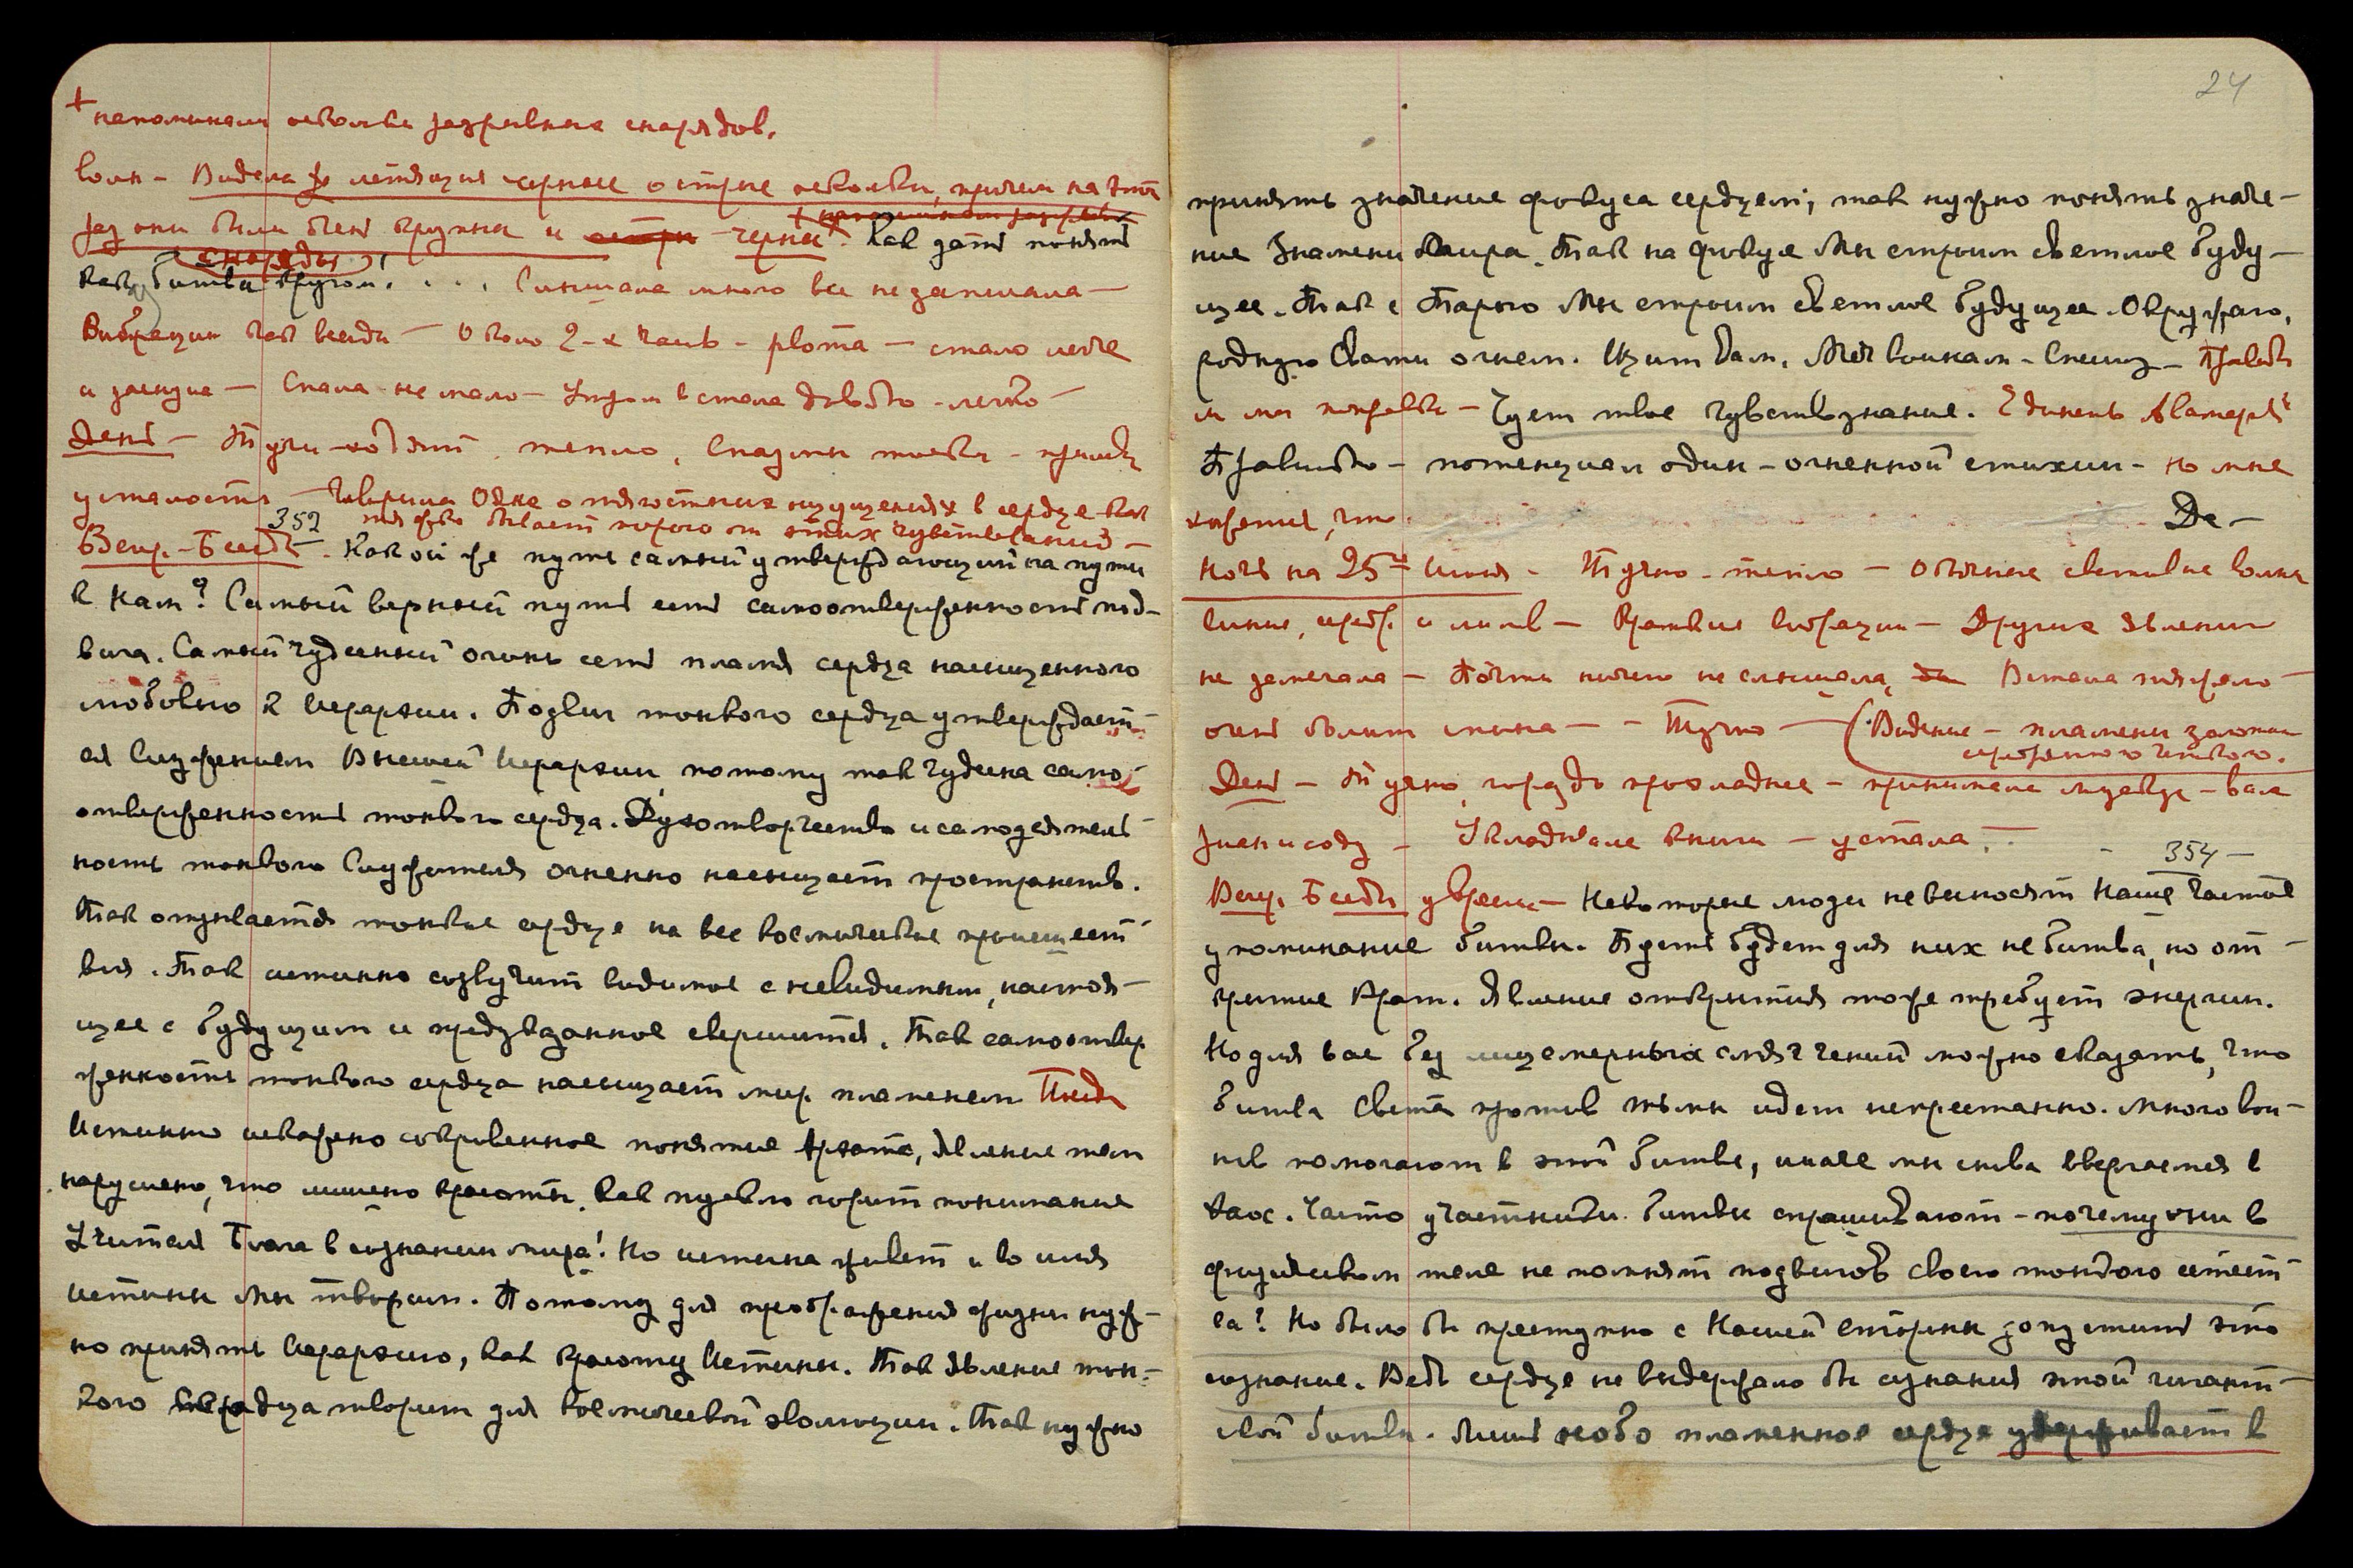 + напоминали осколки разрывных снарядов.
волн – Видела же летящия черные острые осколки, причем на этот
раз они были очень крупны и остры черны +. Как дать понять
снаряды
как битва кругом! . . . Слышала много все не записала –
Вибрации как всегда – Около 2-х часов – рвота – стало легче
и заснула – Спала не мало – Утром встала довольно легко –
День – Тучи ходят, тепло, Спазмы тоски – прилив
усталости – Говорила Оэне о тягостных ощущениях в сердце как
тяжко бывает порою от этих чувствований –
352
Веч. – Беседа. Какой же путь самый утверждающий на пути
к Нам? Самый верный путь есть самоотверженность под-
вига. Самый чудесный огонь есть пламя сердца насыщенного
любовью к Иерархии. Подвиг тонкого сердца утверждает-
ся Служением Высшей Иерархии, потому так чудесна само-
отверженность тонкого сердца. Духотворчество и самодеятель-
ность тонкого Служителя огненно насыщает пространство.
Так отзывается тонкое сердце на все космические происшест-
вия. Так истинно созвучит видимое с невидимым, настоя-
щее с будущим и предуказанное свершится. Так самоотвер
женность тонкого сердца насыщает мир пламенем
Истинно искажено сокровенное понятие Архата, явление тем
нарушено, что лишено красоты. Как пусто горит понимание
Учителя Блага в сознании мира! Но истина живет и во имя
Истины Мы творим. Потому для преображения жизни нуж-
но принять Иерархию, как красоту Истины. Так явление тон-
кого сердца творит для космической эволюции. Так нужно
24
принять значение фокуса сердцем; так нужно понять значе-
ние Знамени Мира. Так на фокусе Мы строим светлое буду-
щее. Так с Тарою Мы строим светлое будущее. Окружаю,
родную Свати огнем. Щит Вам, Меч воинам – Спешу –
– Чует твое чувствознание.
Правильно – потенциал один – огненной стихии – но мне
кажется, что
Да –
Ночь на 25ое Июня – Тучно – тепло – Обычные световые волны
синие, серебр. и лилов – Краткие вибрации – Других явлений
не замечала – Почти ничего не слышала, Встала тяжело –
очень болит спина – – Тучно – (Видение – пламени золотого
серебряного
День – Тучно, гораздо прохладнее – принимала – вале
риан и соду – Укладывала книги – устала. –
354 –
Веч. Беседа у Врем. – Некоторые люди не выносят Наше частое
упоминание битвы. Пусть будет для них не битва, но от-
крытие Врат. Явление открытия тоже требует энергии.
Но для вас без лицемерных смягчений можно сказать, что
битва Света против тьмы идет непрестанно. Много вои-
нов помогают в этой битве, иначе мы снова ввергаемся в
хаос. Часто участники битвы спрашивают – почему они в
физическом теле не помнят подвигов своего тонкого естест-
ва? Но было бы преступно с Нашей стороны допустить это
сознание. Ведь сердце не выдержало бы сознания этой гигант-
ской битвы. Лишь особо пламенное сердце удерживает в